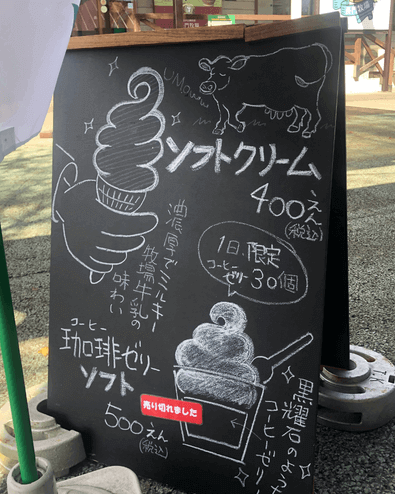 UMOuuu
ソフトクリーム
400えん
(税込)
濃厚でミルキー
牧場牛乳の
味わい
1日限定
コーヒーゼリー 30個
コーヒー
珈琲ゼリー
ソフト
売り切れました
500えん
(税込)
黒耀石のような
コーヒーゼリー